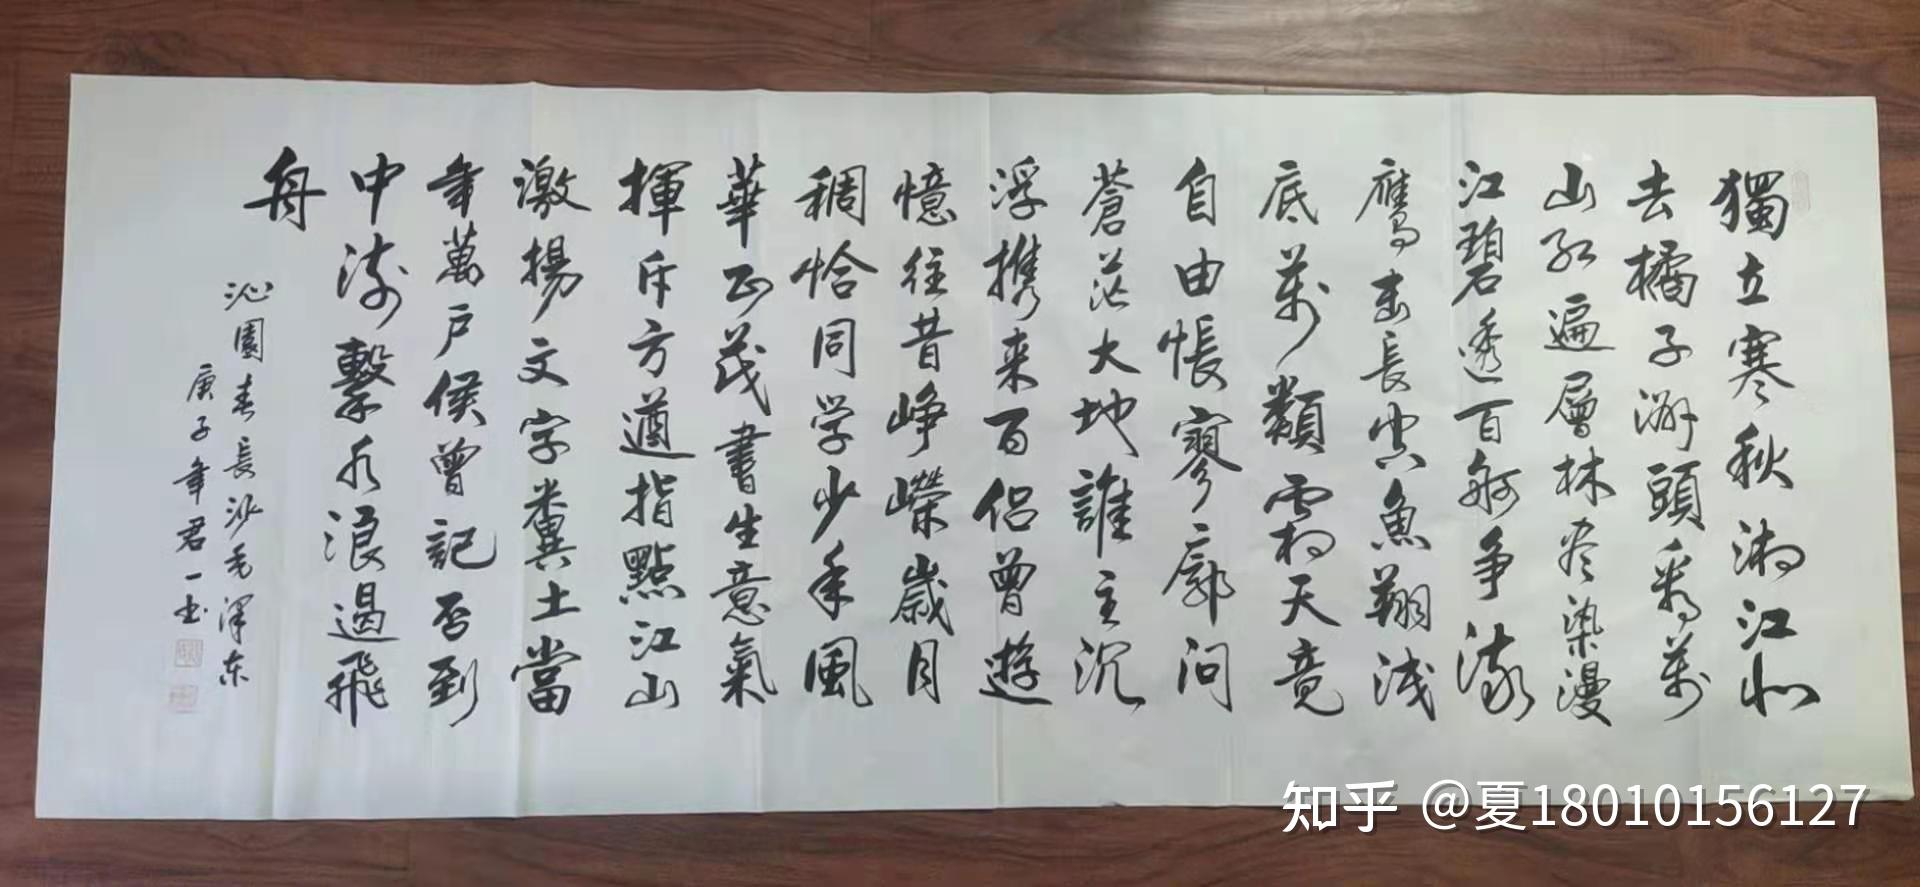 獨立寒秋湘江北
去橘子洲頭看萬
山紅遍層林尽染漫
江碧透百舸争流
鷹击長空魚翔浅
底萬類霜天竟
自由悵寥廓问
蒼茫大地誰主沉
浮携来百侣曾遊
憶往昔峥嶸歲月
稠恰同学少年風
華正茂書生意氣
揮斥方遒指點江山
激揚文字粪土當
年萬户侯曾記否到
中流擊水浪遏飛
舟
沁園春長沙毛泽东
庚子年君一书
知乎 @夏18010156127